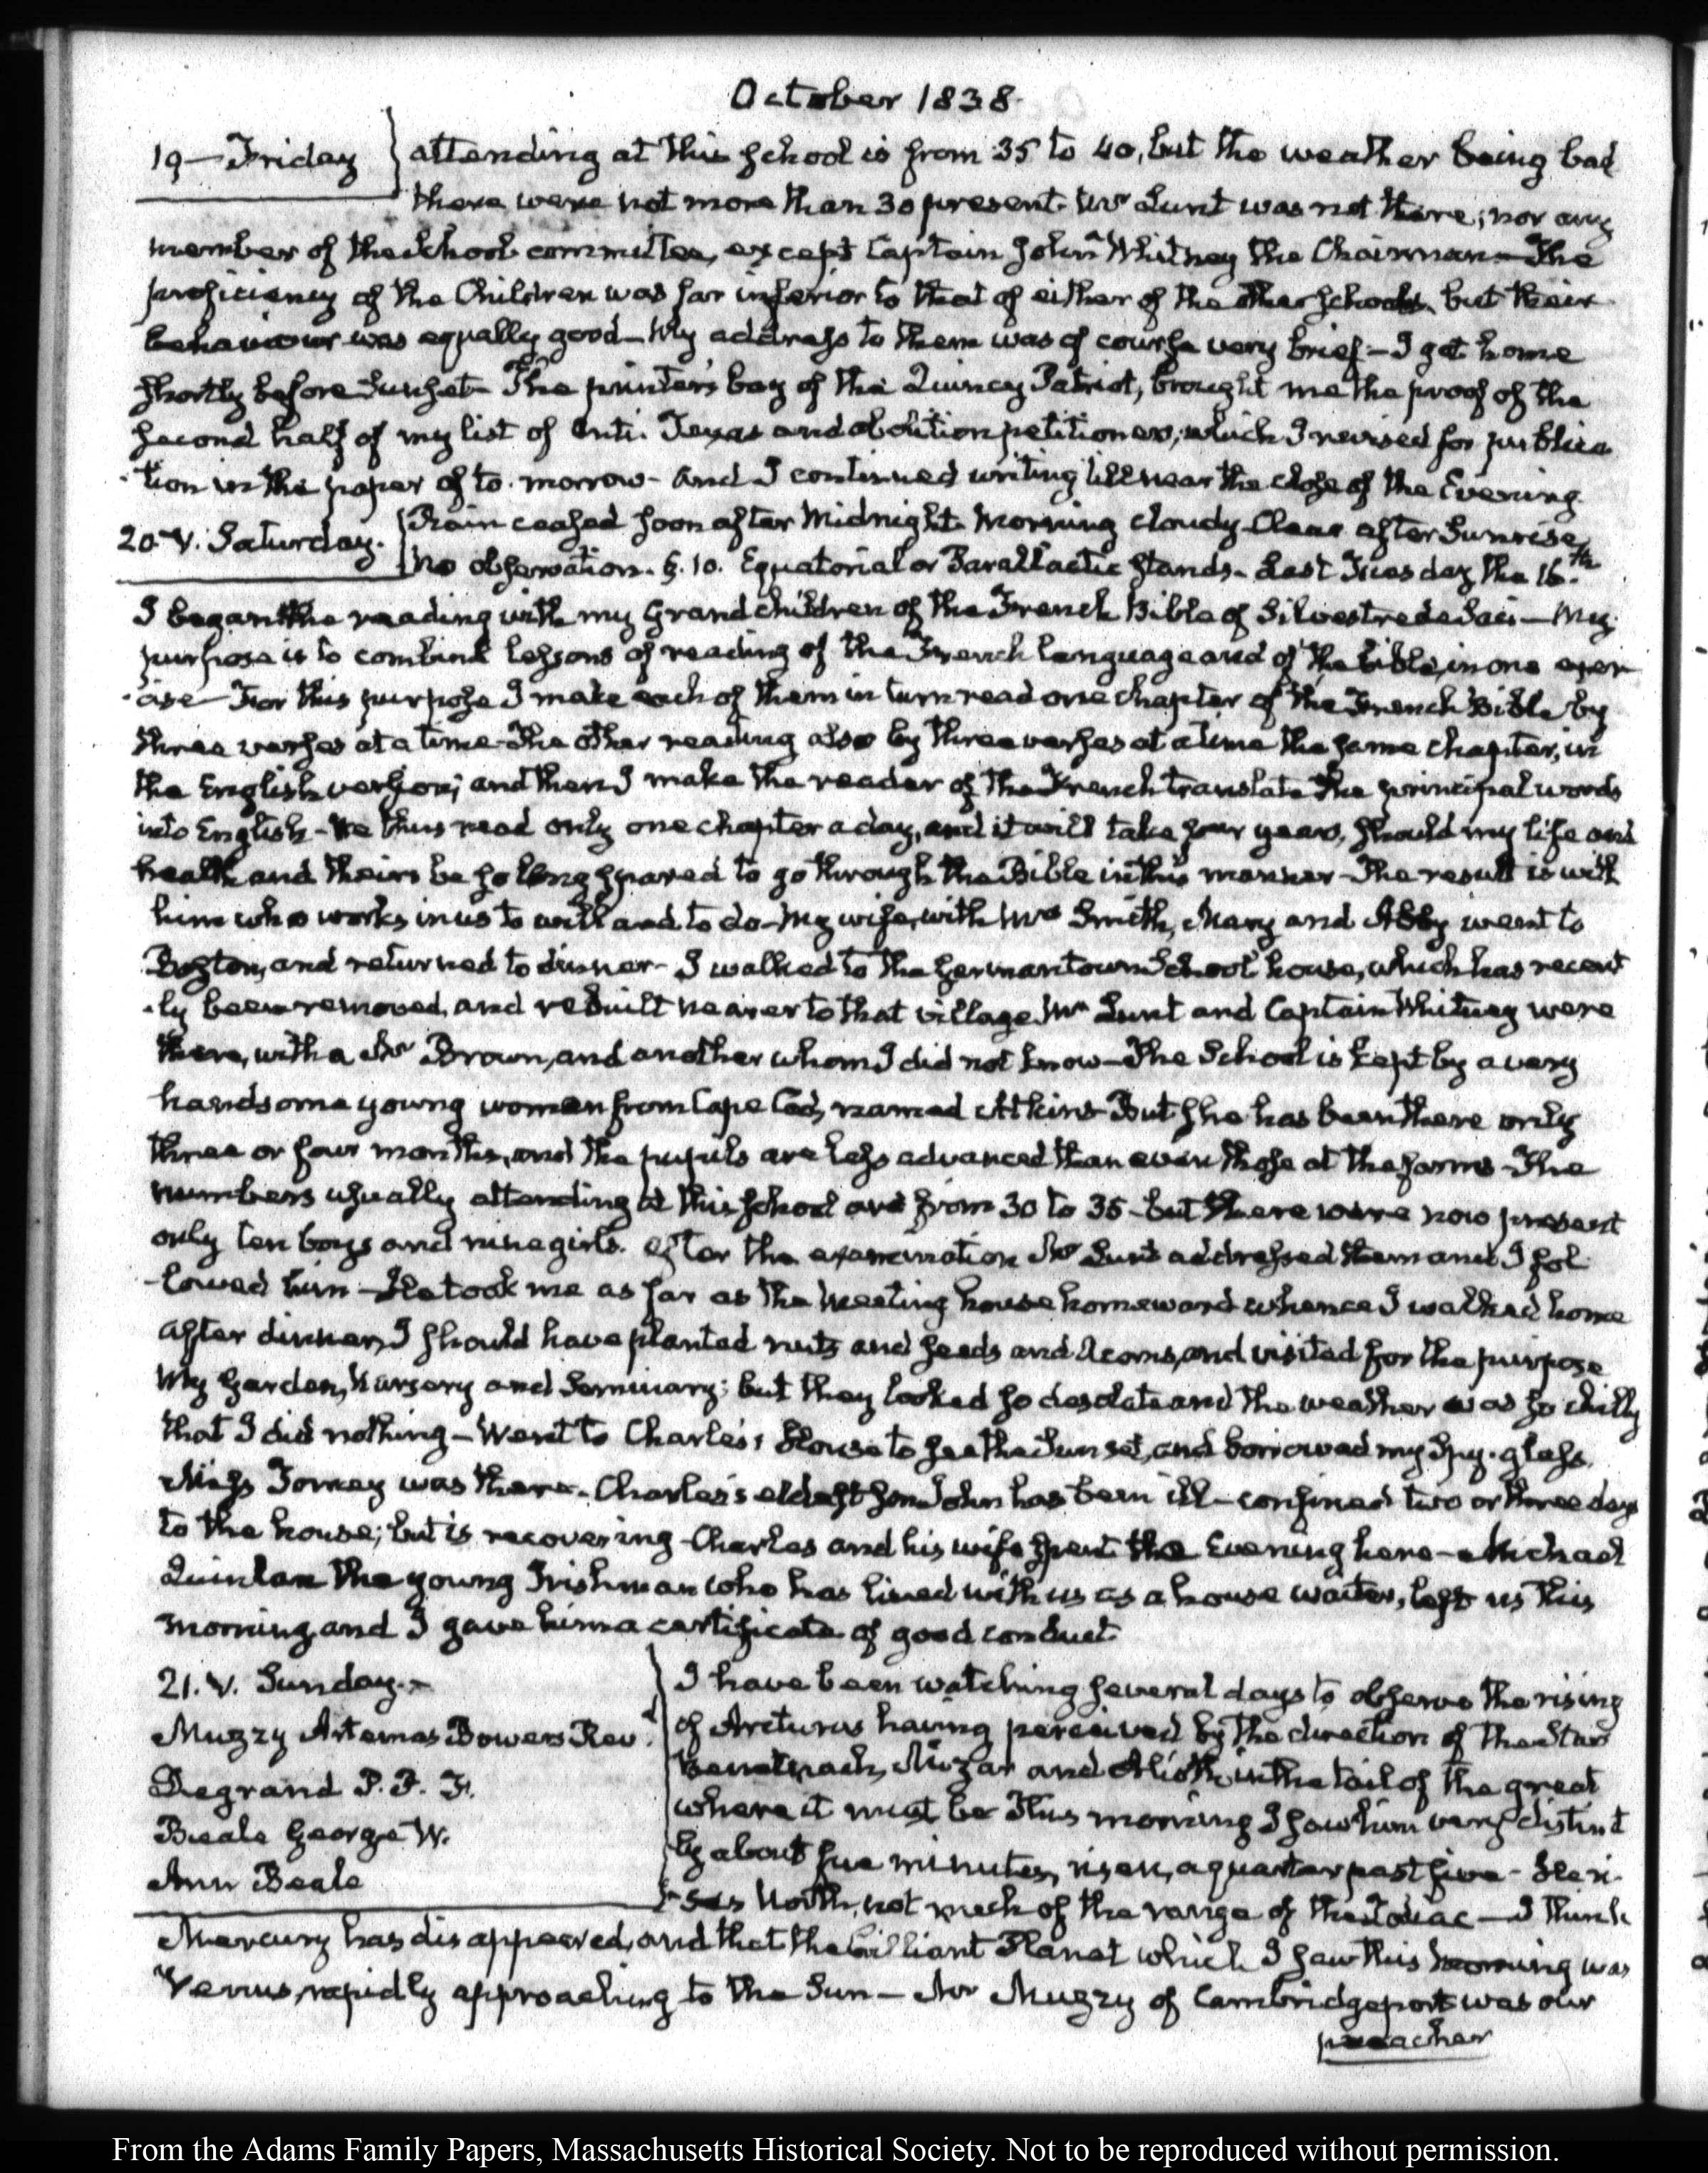 October 1838.
19 — Friday
attending at this school is from 35 to 40, but the weather being bad
there were not more than 30 present. Mr Lunt was not there, nor any
member of the School committee, except Captain John Whitney the Chairman — The
proficiency of the Children was far inferior to that of either of the other schools, but their
behaviour was equally good — My address to them was of course very brief — I got home
shortly before Sunset — The printer's boy of the Quincy Patriot, brought me the proof of the
second half of my list of Anti-Texas and abolition petitioners, which I revised for publica
tion in the paper of to-morrow — and I continued writing till near the close of the Evening.
20. V. Saturday.
Rain ceased soon after Midnight. Morning cloudy. Clear after Sunrise,
no observation. §. 10. Equatorial or Parallactic Stands. Last Tuesday the 16.th
I began the reading with my Grandchildren of the French Bible of Silvestre de Saci — My
purpose is to combine lessons of reading of the French language and of the bible, in one exer
-cise — For this purpose I make each of them in turn read one chapter of the French Bible by
three verses at a time — the other reading also by three verses at a time the same chapter, in
the English version; and then I make the reader of the French translate the principal words
into English — We thus read only one chapter a day, and it will take four years, should my life and
health and theirs be so long spared to go through the Bible in this manner — The result is with
him who works in us to will and to do — My wife, with Mrs Smith, Mary and Abby went to
Boston, and returned to dinner — I walked to the Germantown School house, which has recent
-ly been removed, and rebuilt nearer to that village. Mr Lunt and Captain Whitney were
there, with a Mr Brown, and another whom I did not know — The School is kept by a very
handsome young woman from Cape Cod, named Atkins — But she has been there only
three or four months, and the pupils are less advanced than even those at the farms — The
numbers usually attending at this school are from 30 to 35 — but there were now present
only ten boys and nine girls. After the examination Mr Lunt addressed them and I fol
-lowed him — He took me as far as the Meeting house homeward whence I walked home
After dinner, I should have planted nuts and seeds and Acorns, and visited for the purpose
My Garden, Nursery and Seminary; but they looked so desolate and the weather was so chilly
that I did nothing — Went to Charles's House to see the Sunset, and borrowed my Spy-glass.
Miss Torrey was there. Charles's eldest son John has been ill — confined two or three days
to the house; but is recovering — Charles and his wife spent the Evening here — Michael
Quinlan the young Irishman who has lived with us as a house waiter, left us this
morning, and I gave him a certificate of good conduct.
21. V. Sunday. —
Muzzy Artemas Bowers Revd.
Degrand P. P. F.
Beale George W.
Ann Beale
I have been watching several days to observe the rising
of Arcturus having perceived by the direction of the Stars
Benetnach, Mizar and Alioth in the tail of the great
where it must be This morning I saw him very distinct
ly about five minutes, risen, a quarter past five — He ri-
-ses North, not much of the range of the Zodiac — I think
Mercury has disappeared, and that the brilliant Planet which I saw this morning was
Venus, rapidly approaching to the Sun — Mr Muzzy of Cambridgeport was our
preacher
From the Adams Family Papers, Massachusetts Historical Society. Not to be reproduced without permission.